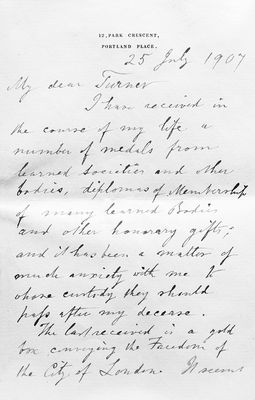 12, PARK CRESCENT,
PORTLAND PLACE.
25 July 1907
My dear Turner
I have received in
the course of my life a
number of medals from
learned societies and other
bodies, diplomas of Membership
of many learned Bodies
and other honorary gifts;
and it has been a matter of
much anxiety with me to
whose custody they should
pass after my decease.
The last received is a gold
box conveying the Freedom of
the City of London. It seems